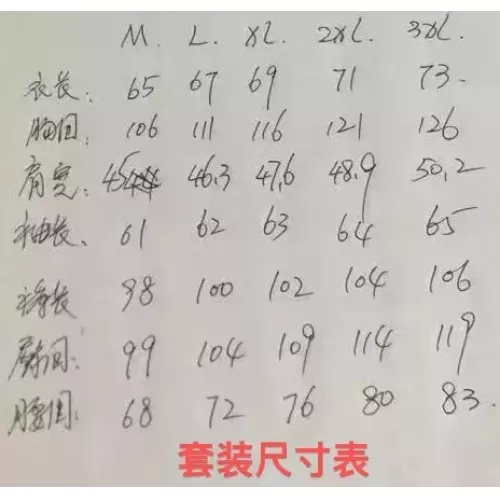 M. L. XL. 2XL. 3XL.
衣长: 65 67 69 71 73.
胸围: 106 111 116 121 126
肩宽: 45 46.3 47.6 48.9 50.2
袖长. 61 62 63 64 65
裤长 98 100 102 104 106
臀围: 99 104 109 114 119
腰围: 68 72 76 80 83.
套装尺寸表